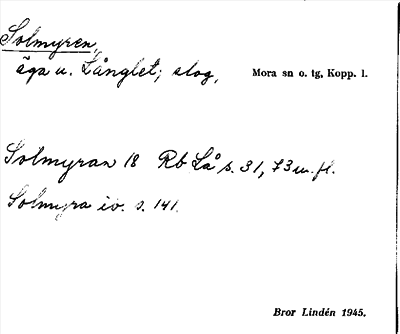 Solmyren,
äga u. Långlet; slog, Mora sn o. tg, Kopp. l.
Solmyran 18 Rb Lå s. 31, 73 m. fl.
Solmyra ib. s. 141.
Bror Lindén 1945.